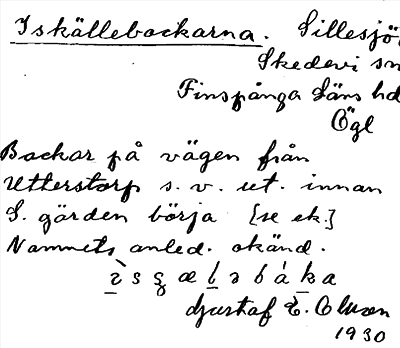 Iskällebackarna. Lillesjö,
Skedevi sn
Finspånga Läns hd
Ögl
Backar på vägen från
Utterstorp s. v. ut. innan
L. gärden börja [se ek.]
Namnets anled. okänd.
Gustaf E. Olsson
1930